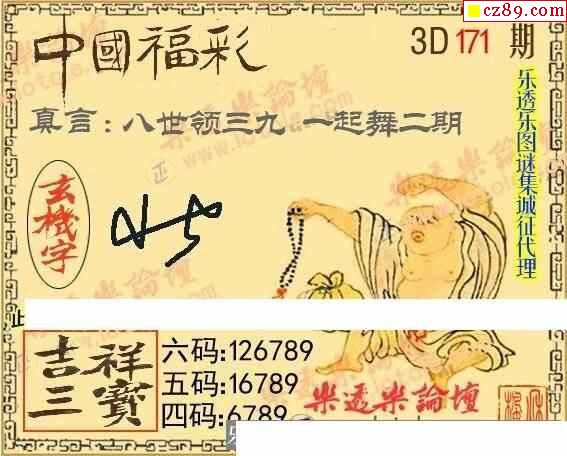 cz89.com
中國福彩
3D 171 期
真言:八世领三九 一起舞二期
乐透乐图谜集诚征代理
玄機字
正
吉祥三寶
六码:126789
五码:16789
四码:6789
樂透樂論壇